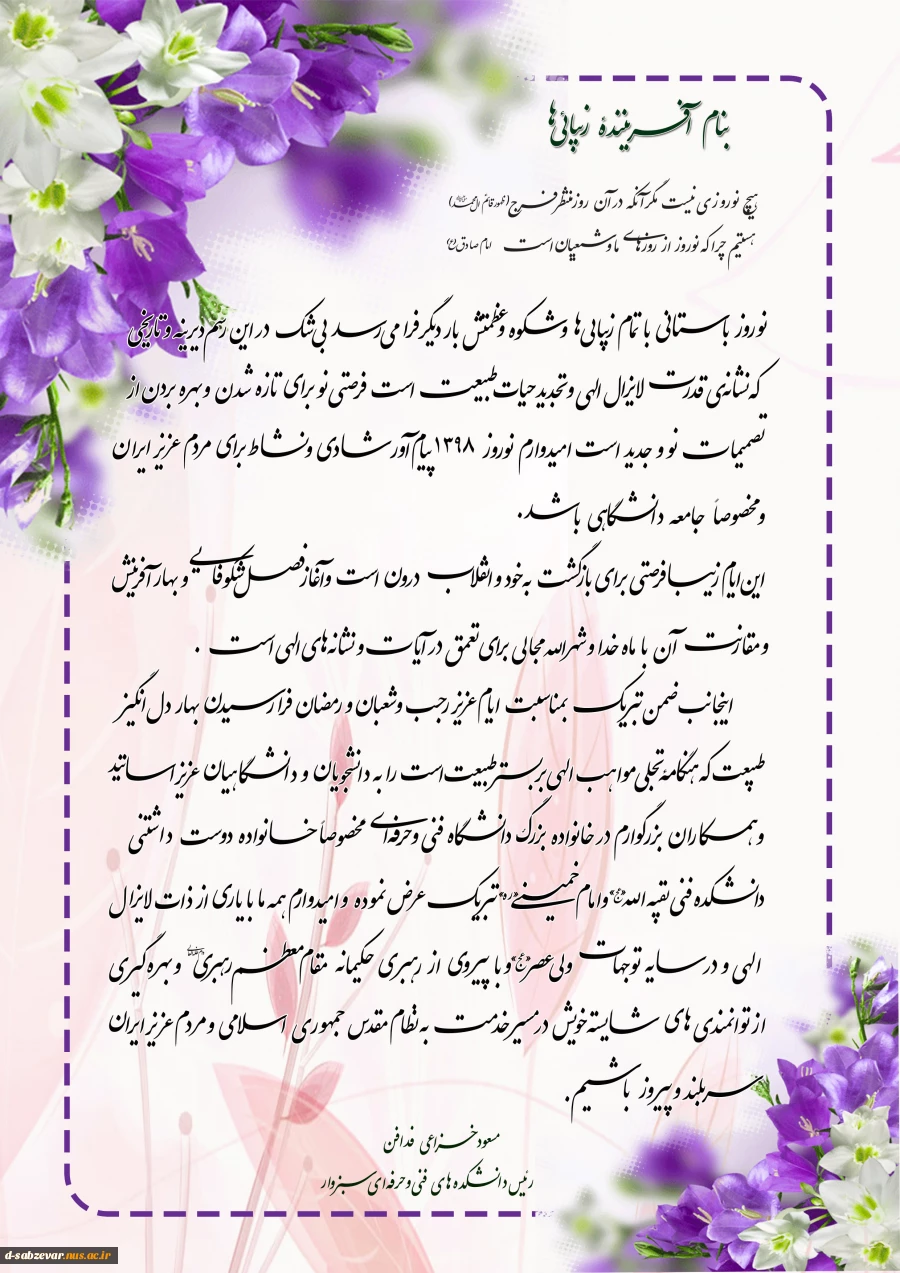 بنام آفریننده زیبائی‌ها
هیچ نوروزی نیست مگر آنکه در آن روز منتظر فرج (ظهور قائم آل محمد)
هستیم چرا که نوروز از روزهای ما و شیعیان است امام صادق (ع)
نوروز باستانی با تمام زیبایی‌ها و شکوه و عظمتش بار دیگر فرا می‌رسد بی‌شک در این رسم دیرینه و تاریخی
که نشانه‌ی قدرت لایزال الهی و تجدید حیات طبیعت است فرصتی نو برای تازه شدن و بهره بردن از
تصمیمات نو و جدید است امیدوارم نوروز ۱۳۹۸ پیام‌آور شادی و نشاط برای مردم عزیز ایران
و مخصوصاً جامعه دانشگاهی باشد.
این ایام زیبا فرصتی برای بازگشت به خود و انقلاب درون است و آغاز فصل شکوفایی و بهار آفرینش
و مقارنت آن با ماه خدا و شهرالله مجالی برای تعمق در آیات و نشانه‌های الهی است .
اینجانب ضمن تبریک بمناسبت ایام عزیز رجب و شعبان و رمضان فرا رسیدن بهار دل انگیز
طبیعت که هنگامه تجلی مواهب الهی بر بستر طبیعت است را به دانشجویان و دانشگاهیان عزیز اساتید
و همکاران بزرگوارم در خانواده بزرگ دانشگاه فنی و حرفه‌ای مخصوصاً خانواده دوست داشتنی
دانشکده فنی بقیه الله «عج» و امام خمینی «ره» تبریک عرض نموده و امیدوارم همه ما با یاری از ذات لایزال
الهی و در سایه توجهات ولی عصر «عج» و با پیروی از رهبری حکیمانه مقام معظم رهبری و بهره گیری
از توانمندی های شایسته خویش در مسیر خدمت به نظام مقدس جمهوری اسلامی و مردم عزیز ایران
سربلند و پیروز باشیم.
مسعود خزاعی فدافن
رئیس دانشکده های فنی و حرفه‌ای سبزوار
d-sabzevar.nus.ac.ir